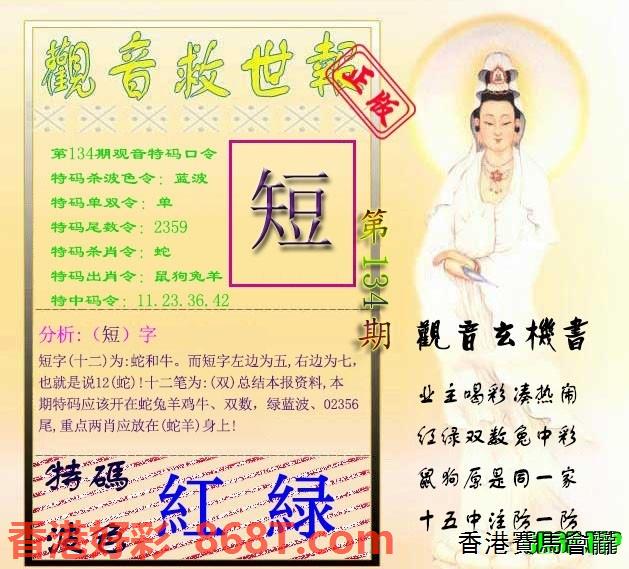 觀音救世報
正版
第134期观音特码口令
特码杀波色令：蓝波
特码单双令：单
特码尾数令：2359
特码杀肖令：蛇
特码出肖令：鼠狗兔羊
特中码令：11.23.36.42
短
第134期
分析:（短）字
短字(十二)为:蛇和牛。而短字左边为五,右边为七,
也就是说12(蛇)!十二笔为:(双)总结本报资料,本
期特码应该开在蛇兔羊鸡牛、双数，绿蓝波、02356
尾,重点两肖应放在(蛇羊)身上!
特碼
波色
紅 绿
觀音玄機書
业主喝彩凑热闹
红绿双数兔中彩
鼠狗原是同一家
十五中注防一防
香港好彩 868T.com
香港賽馬會